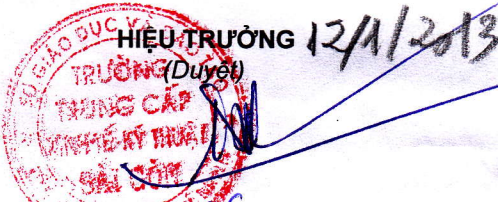 HIỆU TRƯỞNG 12/1/2013
(Duyệt)
SỞ GIÁO DỤC VÀ
TRƯỜNG
TRUNG CẤP
KINH TẾ KỸ THUẬT
SÀI GÒN